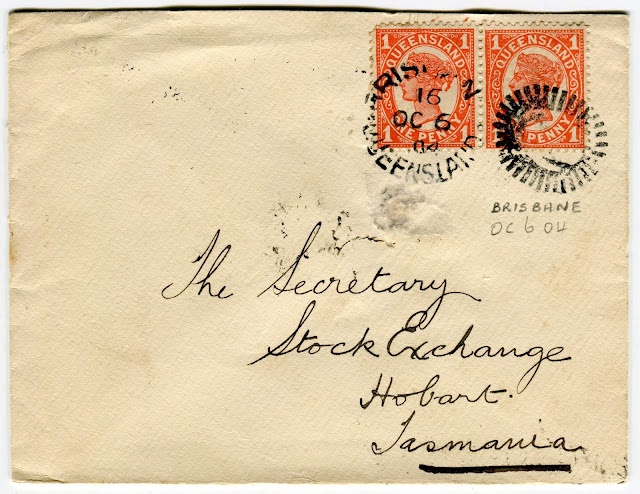 1 QUEENSLAND 1 1 QUEENSLAND 1
BRISBAN
16
OC 6
04
QUEENSLAND
1 ONE PENNY 1 PENNY 1
BRISBANE
OC 6 04
The Secretary
Stock Exchange
Hobart.
Tasmania